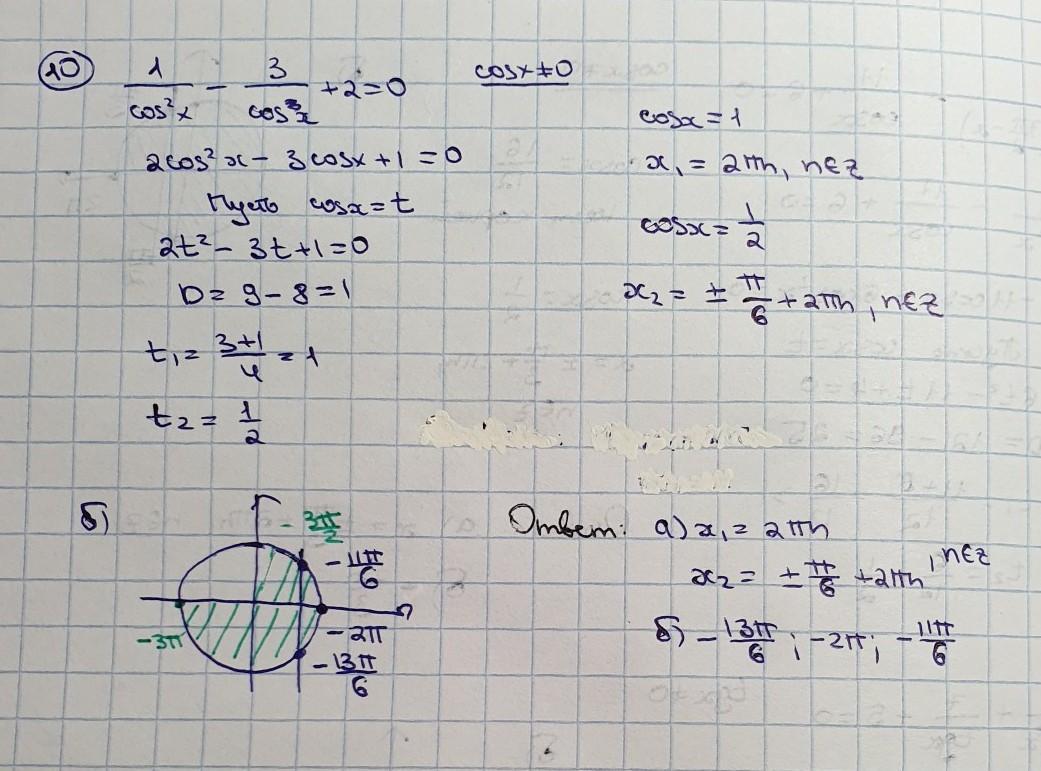 10 1/cos²x - 3/cosx + 2 = 0 cosx ≠ 0
2cos²x - 3cosx + 1 = 0
Пусть cosx = t
2t² - 3t + 1 = 0
D = 9 - 8 = 1
t₁ = (3+1)/4 = 1
t₂ = 1/2
cosx = 1
x₁ = 2πn, n∈Z
cosx = 1/2
x₂ = ± π/6 + 2πn, n∈Z
б)
- 3π/2
- 11π/6
-3π
-2π
- 13π/6
Ответ: а) x₁ = 2πn
x₂ = ± π/6 + 2πn, n∈Z
б) - 13π/6 ; -2π; - 11π/6